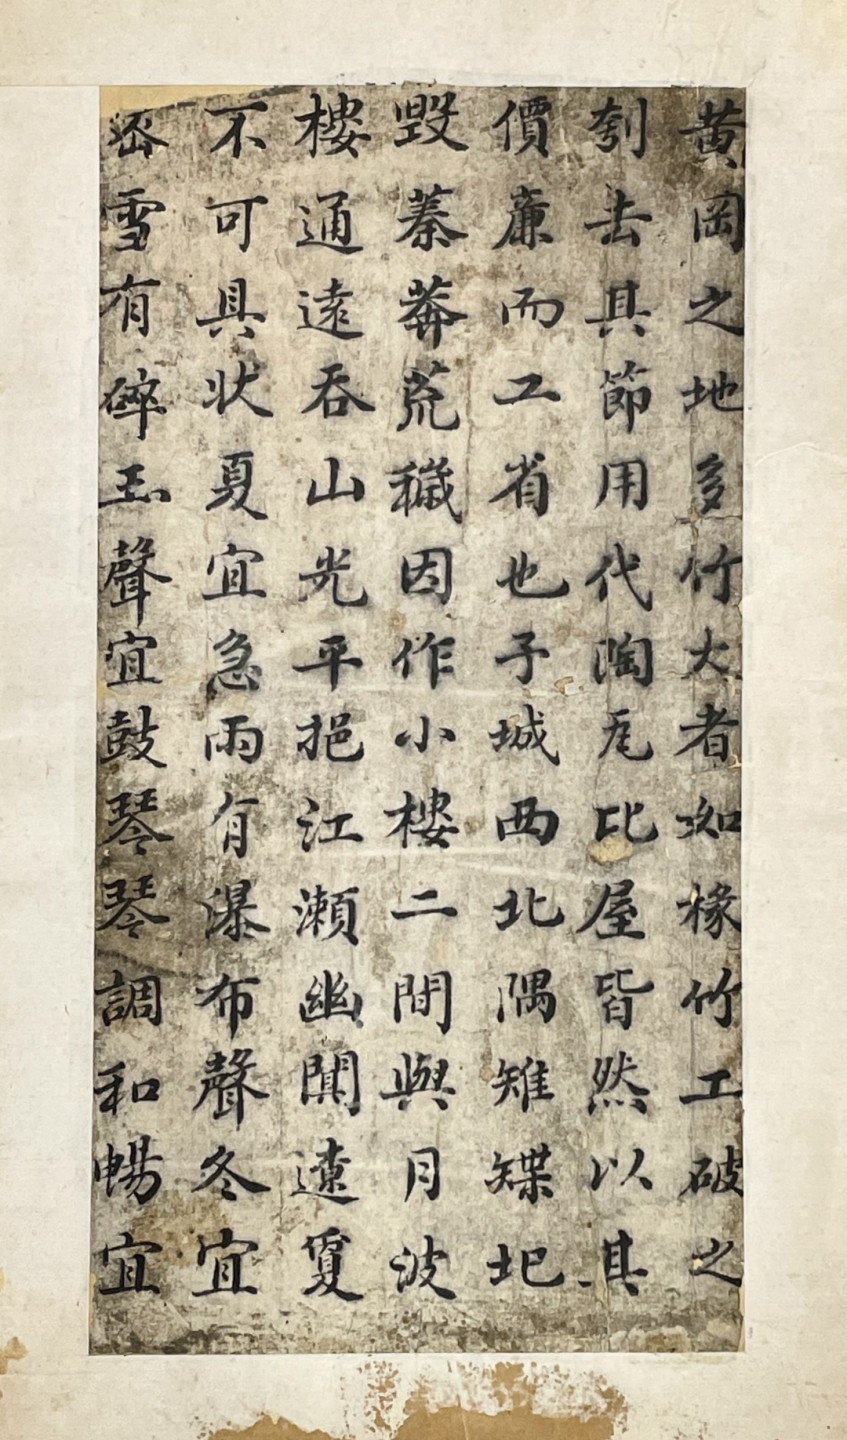 黄岡之地多竹大者如椽竹工破之
刳去其節用代陶瓦比屋皆然以其
價廉而工省也子城西北隅雉堞圮
毀蓁莽荒穢因作小樓二間與月波
樓通遠吞山光平挹江瀨幽闃遼夐
不可具状夏宜急雨有瀑布聲冬宜
密雪有碎玉聲宜鼓琴琴調和暢宜